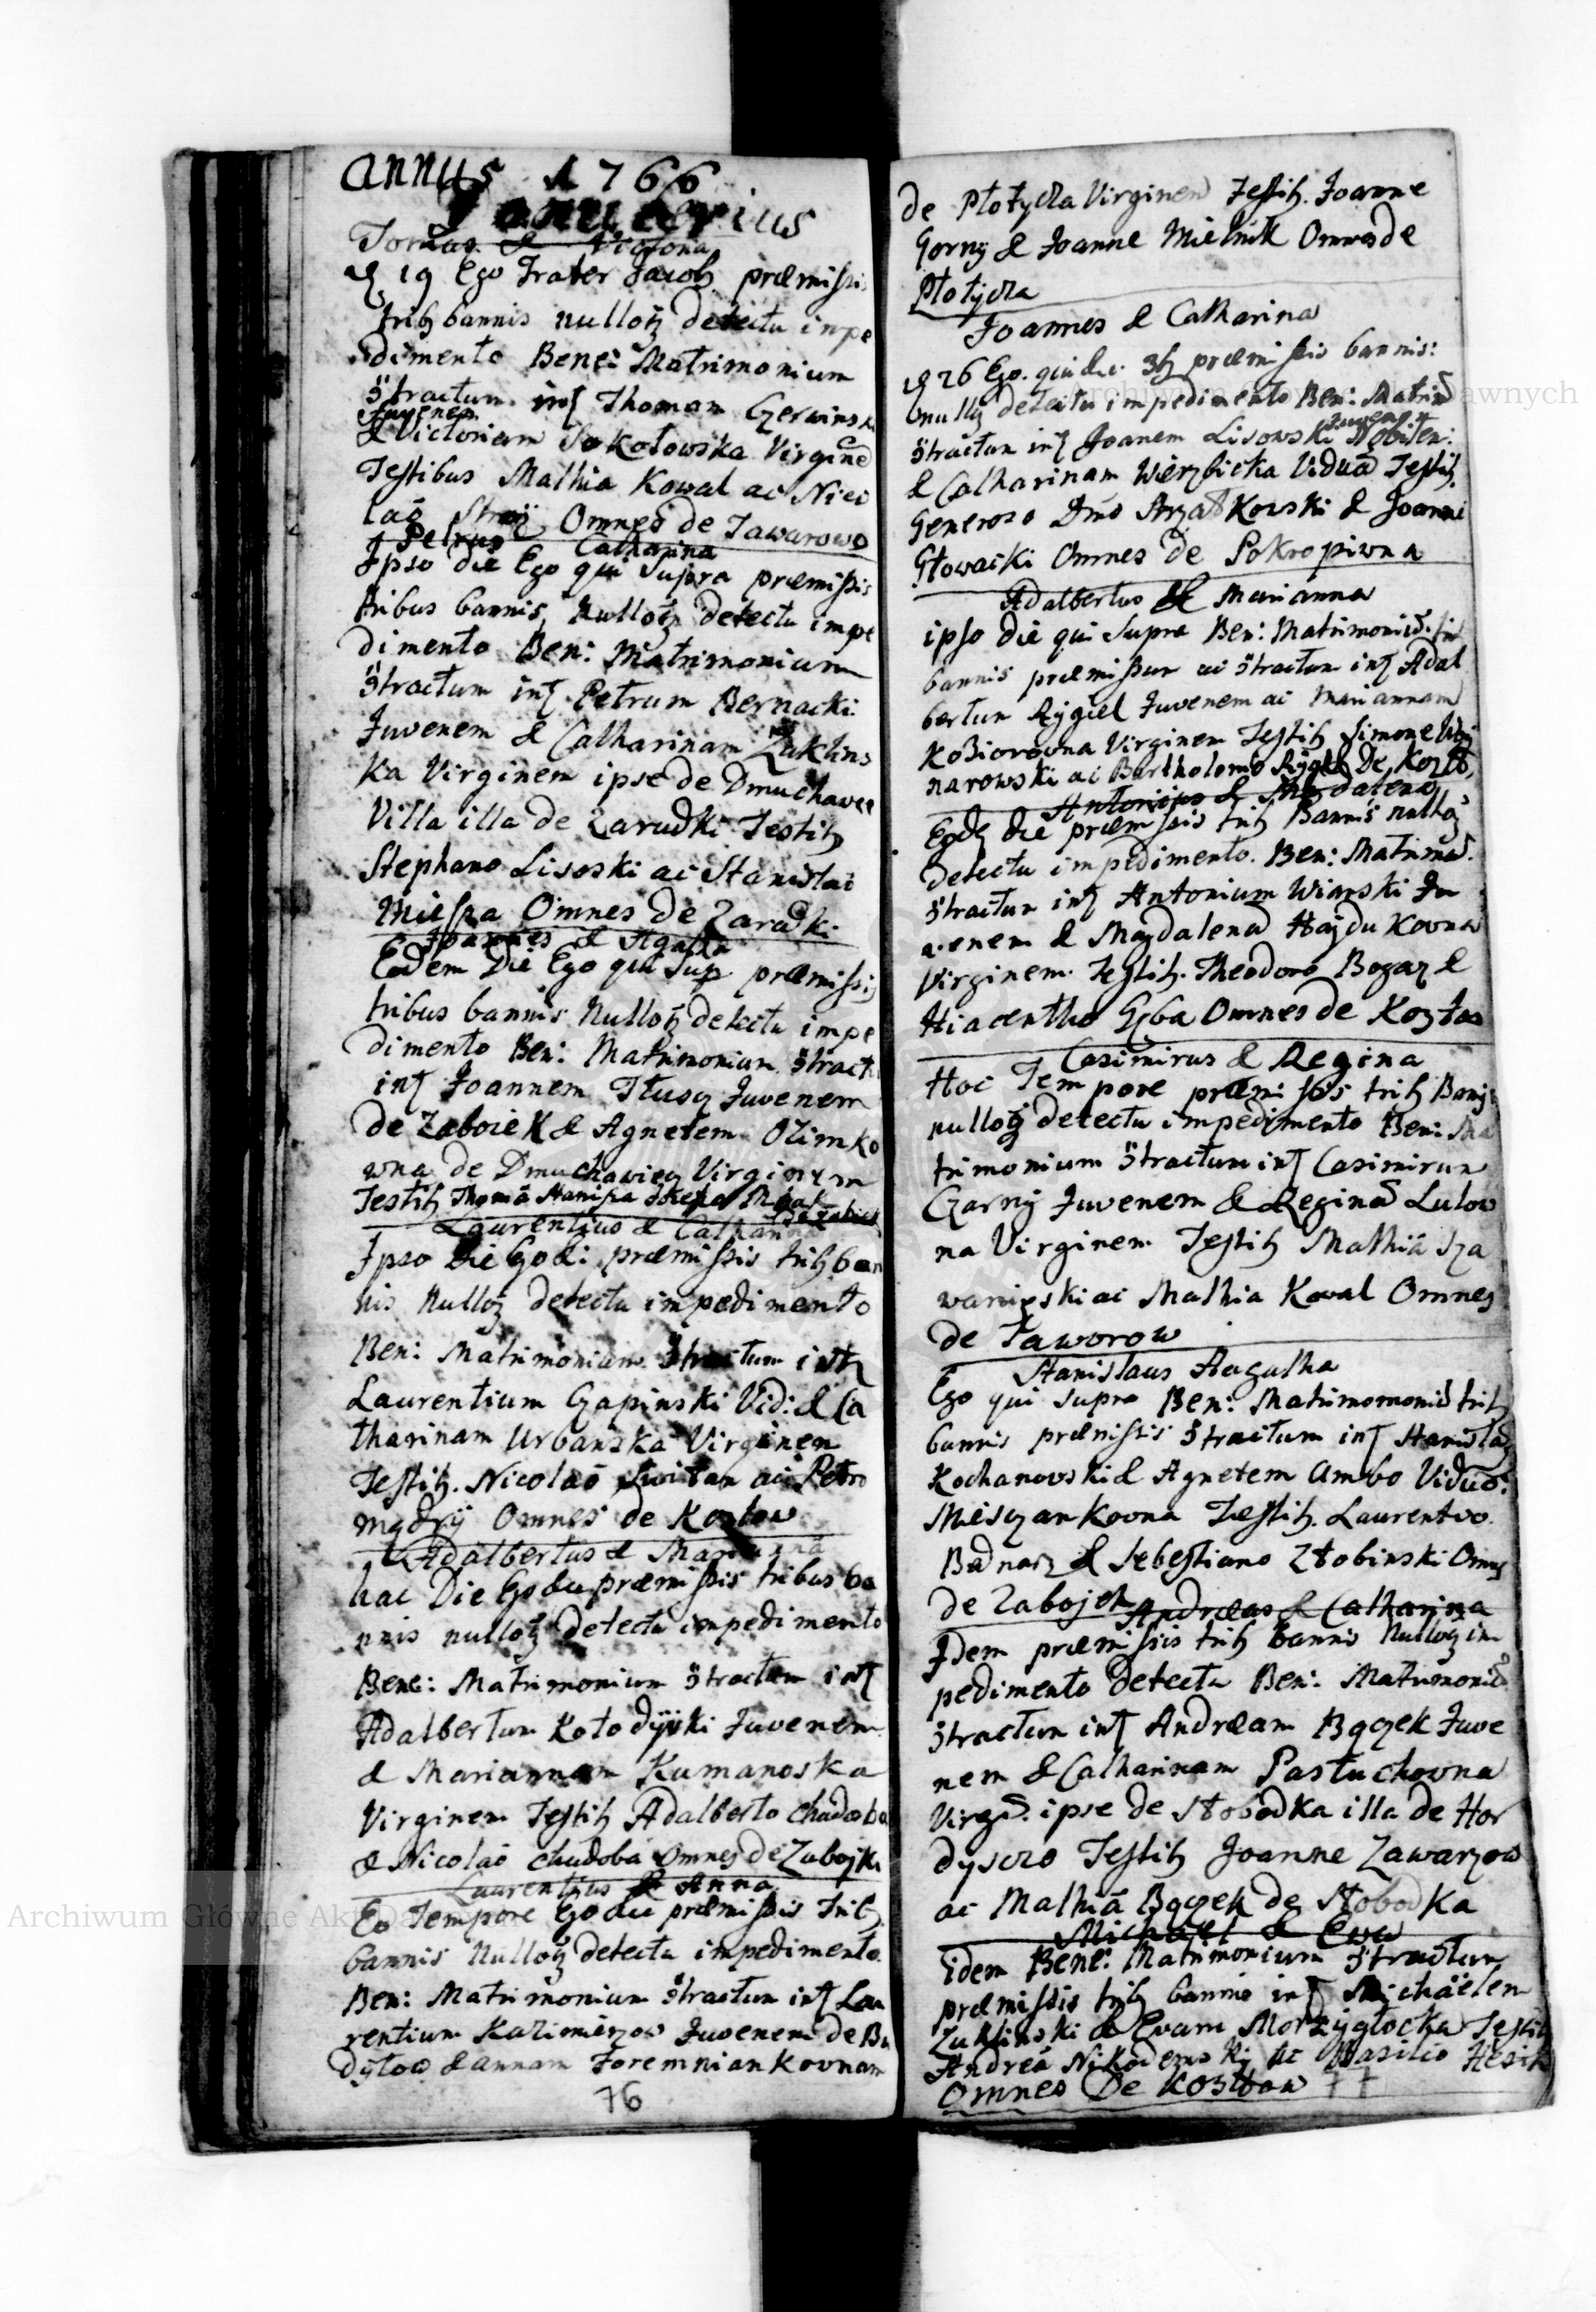 annus 1766
Januarius
Tomas & Victoria
d 19 Ego Frater Jacob, præmissis
trib, bannis nulloq, detectu impe
dimento Bene: Matrimonium
Stractum. int Thomam Czerwinski
Juvenem
& Victoriam Sokołowska Virgine
Testibus Mathia Kowal ac Nico
lao Omnes de Tawarowo
Petrus Catharina
Ipso die Ego qui Supra præmissis
tribus bannis, Nulloq, detectu impe
dimento Ben: Matrimonium
Stractum int. Petrum Bernacki
Juvenem & Catharinam Zuklins
ka Virginem ipse de Dmuchawce
Villa illa de Zarudki Testib,
Stephano Lisoski ac Stanislao
Omnes de Zarudki
Joannes & Agatha
Eodem Die Ego qui Sup præmissis
tribus bannis Nulloq, detectu impe
dimento Ben: Matrimonium Stract
int Joannem Tłusz Juvenem
de Zaboiek & Agnetem Olimko
wna de Dmuchawiec Virginem
Testib, Thoma
Laurentius & Catharina
Ipso die Ego &: præmissis trib, ban
nis Nulloq, detectu impedimento
Ben: Matrimonium Stractum int
Laurentium Czapinski Vid: & Ca
tharinam Urbanska Virginem
Testib. Nicolao Switan ac Petro
mądrÿ Omnes de Kozłow
Adalbertus & Marianna
hac Die Ego &c præmissis tribus ba
nnis nulloq, detectu impedimento
Bene: Matrimonium Stractum int
Adalbertum Kołodÿiski Juvenem
& Mariannam Kumanoska
Virginem Testib, Adalberto Chudoba
& Nicolao Chudoba Omnes de Zabojki
Laurentius & Anna
Eo Tempore Ego &c præmissis Trib,
bannis Nulloq, detectu impedimento
Ben: Matrimonium Stractum int Lau
rentium Kazimierzow Juvenem de Bu
dyłow & annam Foremniankovnam
76
de Płotycza Virginem Testib. Joanne
Gorny & Joanne Mielnik Omnes de
Płotycza
Joannes & Catharina
d 26 Ego. qui &c. 3b, præmissis bannis:
nullq, detectu impedimento Ben: Matrim
Juvenem
Stractum int Joanem Lisowski Nobilem:
& Catharinam Wierzbicka Viduā Testib,
Generoso Dno Kowski & Joanne
Głowacki Omnes de Pokropiwna
Adalbertus & Marianna
ipso die qui Supra Ben: Matrimoniū. trib
bannis præmissum ac Stractum int Adal
bertum Rÿgiel Juvenem ac Mariannam
Koziorowna Virginem Testib, Simone
narowski ac Bartholomeo Rÿgel De Kozło
Antonius & Magdalena
Eodem die præmissis trib, Bannis nulloq,
detectu impedimento. Ben: Matrimo.
Stractum int Antonium Wianski Ju
venem & Magdalenā Haydukovna
Virginem. Testib. Theodoro Bogaz &
Hiacentho Gęba Omnes de Kozłow
Casimirus & Regina
Hoc Tempore præmissis trib, Bannis
nulloq, detectu impedimento Ben: Ma
trimonium Stractum int Casimirum
Czarnÿ Juvenem & Reginā Lulow
na Virginem Testib, Mathiā Sza
waninski ac Mathia Kowal Omnes
de Taworow
Stanislaus Aagatha
Ego qui supra Ben: Matrimomoniū trib,
bannis præmissis Stractum int Stanislau
Kochanovski & Agnetem Ambo Viduo:
Miesczankovna Testib. Laurentvo.
Bednarz & Sebestiano Złobinski Omnes
de Zabojek
Andreas & Catharina
Idem præmissis trib, bannis Nulloq, im
pedimento detectu Ben: Matrimoniū
Stractum int Andræam Bączek Juve
nem & Catharinam Pastuchowna
Virgī. ipse de Słobodka illa de Hor
dyscze Testib, Joanne Zawarzow
ac Mathiā Bączek de Słobodka
Michael & Eva
idem Bene: Matrimonium Stractum
præmissis trib, bannis int Michäelem
Zuklinski & Evam Morzÿglocka Testib,
Andreā Nikodemski ac Basilio Hesik
Omnes De Kozłow 77